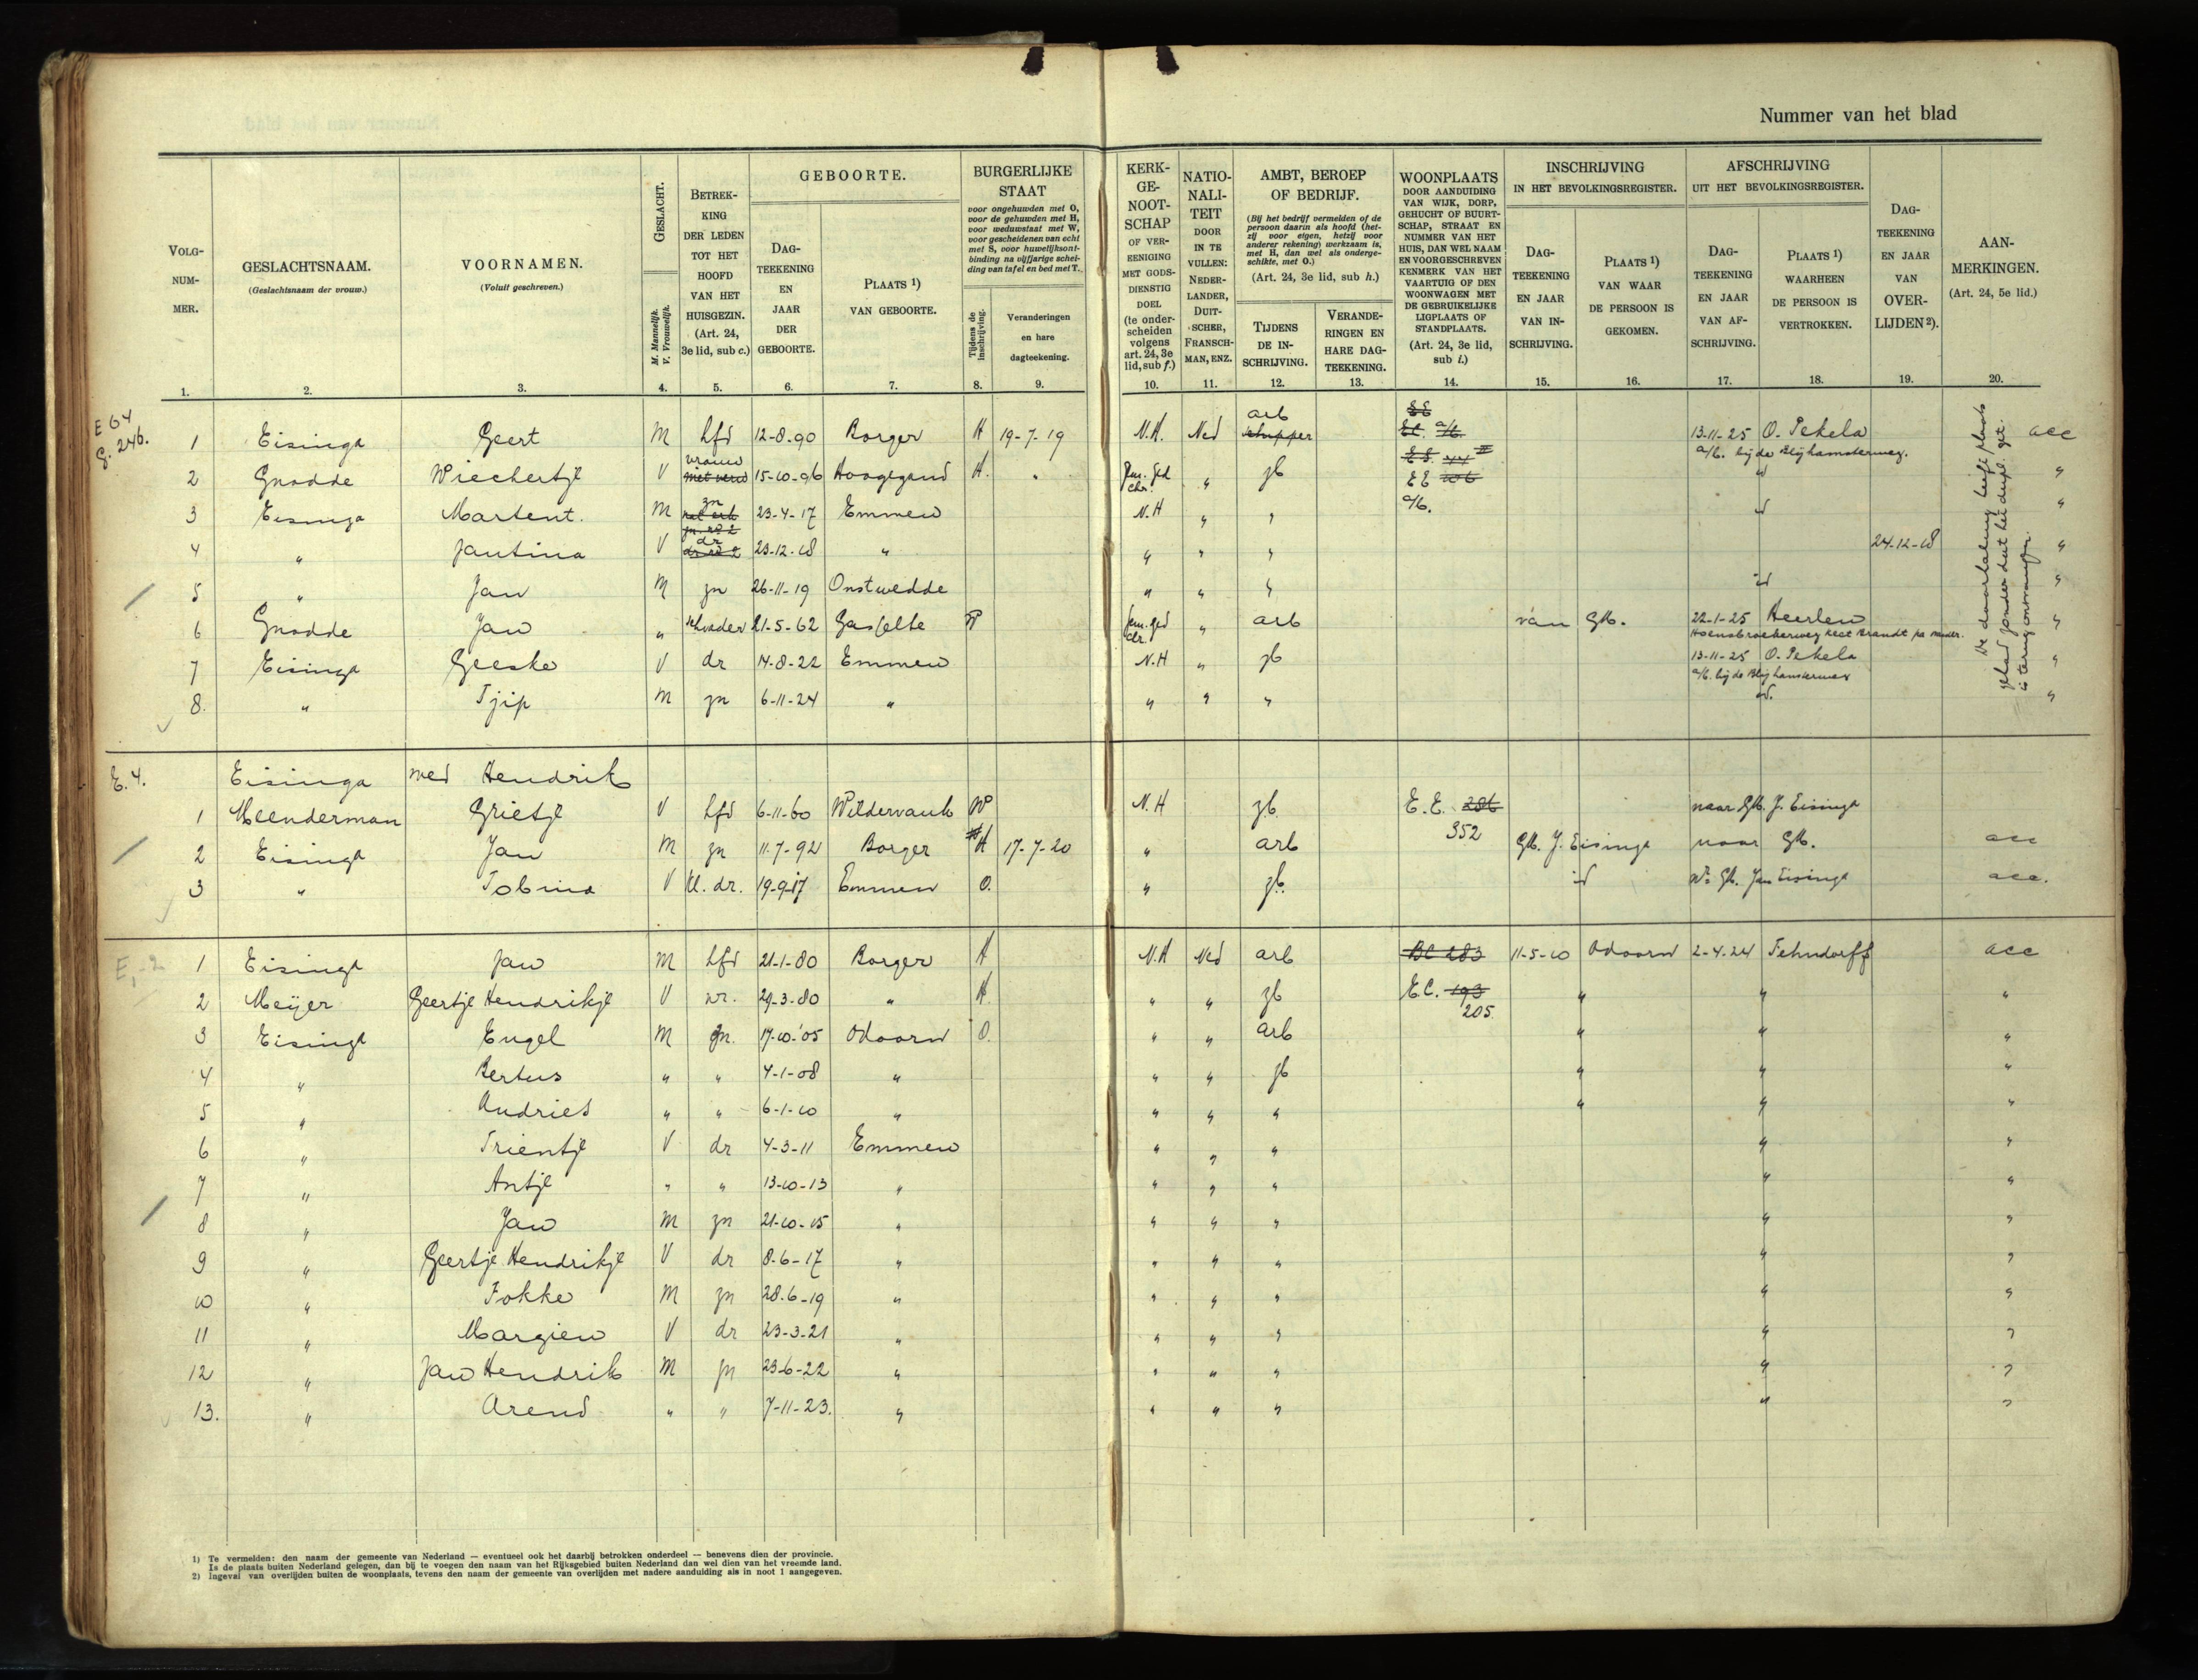 Nummer van het blad
VOLG-
NUM-
MER.
GESLACHTSNAAM.
(Geslachtsnaam der vrouw.)
VOORNAMEN.
(Voluit geschreven.)
GESLACHT.
M. Mannelijk.
V. Vrouwelijk.
BETREK-
KING
DER LEDEN
TOT HET
HOOFD
VAN HET
HUISGEZIN.
(Art. 24,
3e lid, sub c.)
GEBOORTE.
DAG-
TEEKENING
EN
JAAR
DER
GEBOORTE.
PLAATS 1)
VAN GEBOORTE.
BURGERLIJKE
STAAT
voor ongehuwden met O,
voor de gehuwden met H,
voor weduwstaat met W,
voor gescheidenen van echt
met S, voor huwelijksont-
binding na vijfjarige schei-
ding van tafel en bed met T.
Tijdens de
inschrijving.
Veranderingen
en hare
dagteekening.
KERK-
GE-
NOOT-
SCHAP
OF VER-
EENIGING
MET GODS-
DIENSTIG
DOEL
(te onder-
scheiden
volgens
art. 24, 3e
lid, sub f.)
NATIO-
NALI-
TEIT
DOOR
IN TE
VULLEN:
NEDER-
LANDER,
DUIT-
SCHER,
FRANSCH-
MAN, ENZ.
AMBT, BEROEP
OF BEDRIJF.
(Bij het bedrijf vermelden of de
persoon daarin als hoofd (het-
zij voor eigen, hetzij voor
anderer rekening) werkzaam is,
met H, dan wel als onderge-
schikte, met O.)
(Art. 24, 3e lid, sub h.)
TIJDENS
DE IN-
SCHRIJVING.
VERANDE-
RINGEN EN
HARE DAG-
TEEKENING.
WOONPLAATS
DOOR AANDUIDING
VAN WIJK, DORP,
GEHUCHT OF BUURT-
SCHAP, STRAAT EN
NUMMER VAN HET
HUIS, DAN WEL NAAM
EN VOORGESCHREVEN
KENMERK VAN HET
VAARTUIG OF DEN
WOONWAGEN MET
DE GEBRUIKELIJKE
LIGPLAATS OF
STANDPLAATS.
(Art. 24, 3e lid,
sub i.)
INSCHRIJVING
IN HET BEVOLKINGSREGISTER.
DAG-
TEEKENING
EN JAAR
VAN IN-
SCHRIJVING.
PLAATS 1)
VAN WAAR
DE PERSOON IS
GEKOMEN.
AFSCHRIJVING
UIT HET BEVOLKINGSREGISTER.
DAG-
TEEKENING
EN JAAR
VAN AF-
SCHRIJVING.
PLAATS 1)
WAARHEEN
DE PERSOON IS
VERTROKKEN.
DAG-
TEEKENING
EN JAAR
VAN
OVER-
LIJDEN 2).
AAN-
MERKINGEN.
(Art. 24, 5e lid.)
1. 2. 3. 4. 5. 6. 7. 8. 9. 10. 11. 12. 13. 14. 15. 16. 17. 18. 19. 20.
E 64
G. 246.
arb
1 Eisinga Geert M hfd 12-8-90 Borger H 19-7-19 N.H. Ned 13-11-25 O. Pekela acc
a/b. bij de Blijhamsterweg.
vrouw
2 Gnodde Wiechertje V 15-10-96 Hoogezand H. " Jen. ged chr. " zb EE id "
zn
3 Eisinga Martent. M 23-4-17 Emmen N.H " " a/b. id "
dr
4 " Jantina V 23-12-18 " " " " 24-12-18 "
5 " Jan M zn 26-11-19 Onstwedde " " " id "
6 Gnodde Jan " schvader 21-5-62 Gasselte W Jen. ged chr. " arb van Gk. 22-1-25 Heerlen "
7 Eisinga Geeske V dr 14-8-22 Emmen N.H " zb 13-11-25 O. Pekela "
a/b. bij de Blijhamsterweg
8. " Tjip M zn 6-11-24 " " " " id. "
E.4.
Eisinga wed Hendrik
1 Meenderman Grietje V hfd 6-11-60 Wildervank W N.H zb. E.E. 286 naar Gk. J. Eisinga
352
2 Eisinga Jan M zn 11-7-92 Borger H 17-7-20 " arb Gk. J. Eisinga naar Gk. acc
3 " Tobina V kl. dr. 19-9-17 Emmen O. " zb. id Gk. Jan Eisinga acc.
E,-2
1 Eisinga Jan M hfd 21-1-80 Borger H N.H Ned arb BC 283 11-5-10 Odoorn 2-4-24 Fehndorff acc
2 Meijer Geertje Hendrikje V vr. 29-3-80 " H. " " zb E.C. 193 " " "
205.
3 Eisinga Engel M zn. 17-10-'05 Odoorn O. " " arb " " "
4 " Bertus " " 4-1-08 " " " zb " " "
5 " Andries " " 6-1-10 " " " " " " "
6 " Trientje V dr 4-3-11 Emmen " " " " "
7 " Antje " " 13-10-13 " " " " " "
8 " Jan M zn 21-10-15 " " " " " "
9 " Geertje Hendrikje V dr 8-6-17 " " " " " "
10 " Fokke M zn 28-6-19 " " " " " "
11 " Margien V dr 23-3-21 " " " " " "
12 " Jan Hendrik M zn 23-6-22 " " " " " "
13. " Arend " " 7-11-23. " " " " " "
1) Te vermelden: den naam der gemeente van Nederland — eventueel ook het daarbij betrokken onderdeel — benevens dien der provincie.
Is de plaats buiten Nederland gelegen, dan bij te voegen den naam van het Rijksgebied buiten Nederland dan wel dien van het vreemde land.
2) Ingeval van overlijden buiten de woonplaats, tevens den naam der gemeente van overlijden met nadere aanduiding als in noot 1 aangegeven.